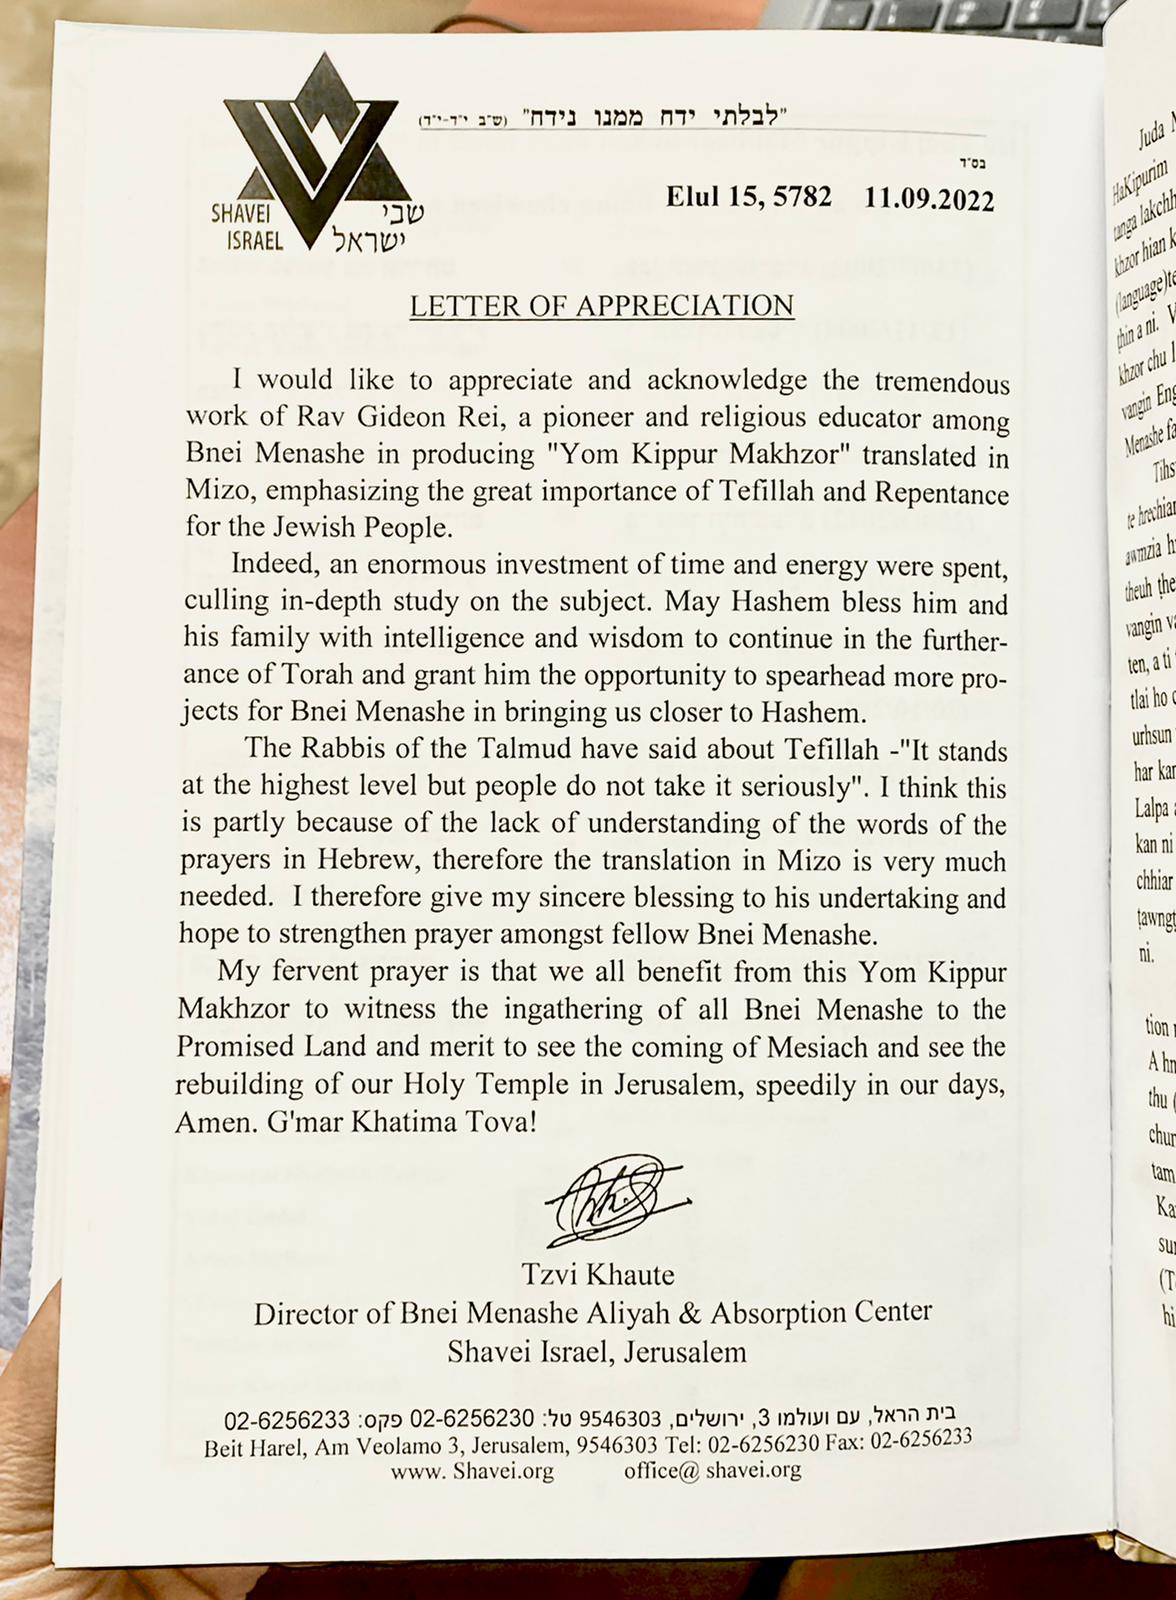 "לבלתי ידח ממנו נידח" (ש"ב י"ד-י"ד)
בס"ד
SHAVEI
ISRAEL
שבי
ישראל
Elul 15, 5782 11.09.2022
LETTER OF APPRECIATION
I would like to appreciate and acknowledge the tremendous
work of Rav Gideon Rei, a pioneer and religious educator among
Bnei Menashe in producing "Yom Kippur Makhzor" translated in
Mizo, emphasizing the great importance of Tefillah and Repentance
for the Jewish People.
Indeed, an enormous investment of time and energy were spent,
culling in-depth study on the subject. May Hashem bless him and
his family with intelligence and wisdom to continue in the further-
ance of Torah and grant him the opportunity to spearhead more pro-
jects for Bnei Menashe in bringing us closer to Hashem.
The Rabbis of the Talmud have said about Tefillah -"It stands
at the highest level but people do not take it seriously". I think this
is partly because of the lack of understanding of the words of the
prayers in Hebrew, therefore the translation in Mizo is very much
needed. I therefore give my sincere blessing to his undertaking and
hope to strengthen prayer amongst fellow Bnei Menashe.
My fervent prayer is that we all benefit from this Yom Kippur
Makhzor to witness the ingathering of all Bnei Menashe to the
Promised Land and merit to see the coming of Mesiach and see the
rebuilding of our Holy Temple in Jerusalem, speedily in our days,
Amen. G'mar Khatima Tova!
Tzvi Khaute
Director of Bnei Menashe Aliyah & Absorption Center
Shavei Israel, Jerusalem
בית הראל, עם ועולמו 3, ירושלים, 9546303 טל: 02-6256230 פקס: 02-6256233
Beit Harel, Am Veolamo 3, Jerusalem, 9546303 Tel: 02-6256230 Fax: 02-6256233
www. Shavei.org office@ shavei.org
Juda
HaKipurim
khzor hian
(language)te
thin a ni.
khzor chu
vangin
Menashe
ten, a ti
tlai ho
urhsun
Lalpa
kan ni
chhiar
ni.
tion
thu
tam